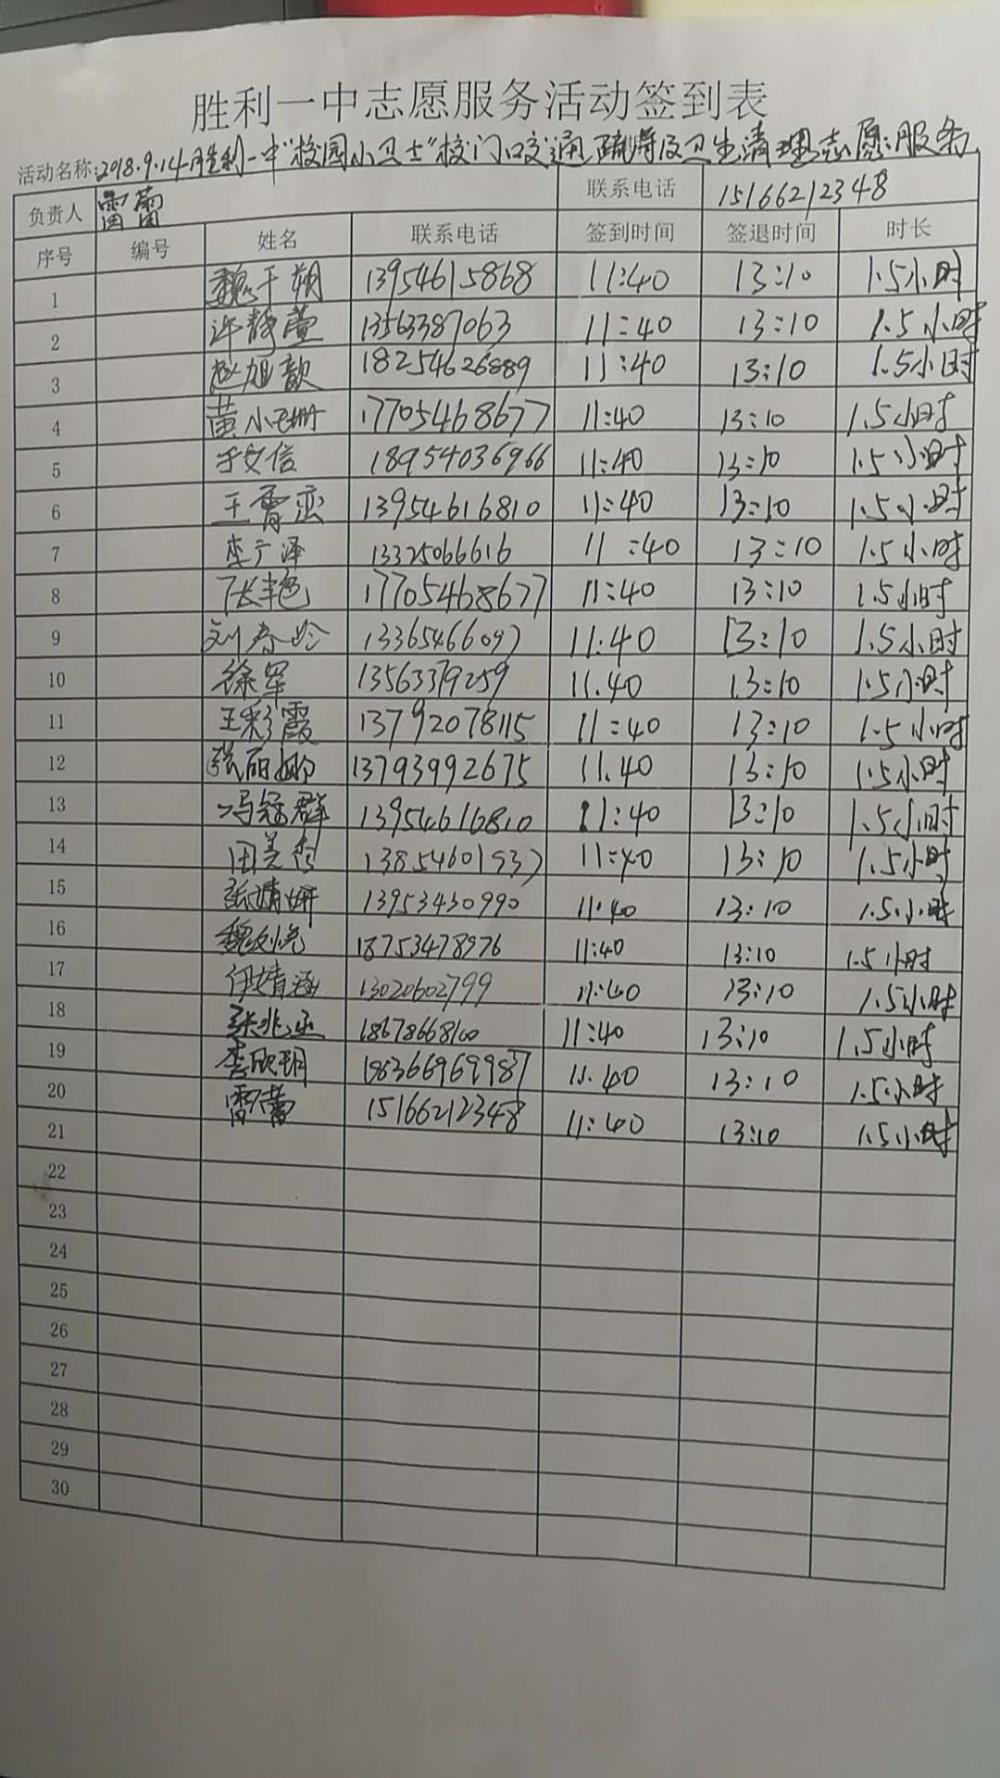 胜利一中志愿服务活动签到表
活动名称:2018.9.14胜利一中"校园小卫士"校门口交通疏导及卫生清理志愿服务
负责人 雷蕾 联系电话 15166212348
序号 编号 姓名 联系电话 签到时间 签退时间 时长
1 魏于朔 13954615868 11:40 13:10 1.5小时
2 许静萱 13563387063 11:40 13:10 1.5小时
3 赵旭歆 18254626889 11:40 13:10 1.5小时
4 黄小珊 17705468677 11:40 13:10 1.5小时
5 于文信 18954036966 11:40 13:10 1.5小时
6 王 13954616810 11:40 13:10 1.5小时
7 李广泽 1332506616 11:40 13:10 1.5小时
8 张艳 17705468677 11:40 13:10 1.5小时
9 刘春玲 13365466097 11:40 13:10 1.5小时
10 徐军 13563379259 11.40 13:10 1.5小时
11 王彩霞 13792078115 11:40 13:10 1.5小时
12 张丽娜 13793992675 11.40 13:10 1.5小时
13 冯冠群 13954616810 11:40 13:10 1.5小时
14 田美香 13854601937 11:40 13:10 1.5小时
15 张婧妍 13953430990 11:40 13:10 1.5小时
16 魏 18753478976 11:40 13:10 1.5小时
17 伊婧涵 13020602799 11:40 13:10 1.5小时
18 张兆 18678668100 11:40 13:10 1.5小时
19 李欣玥 11.40 13:10 1.5小时
20 雷蕾 15166212348 11:40 13:10 1.5小时
21
22
23
24
25
26
27
28
29
30